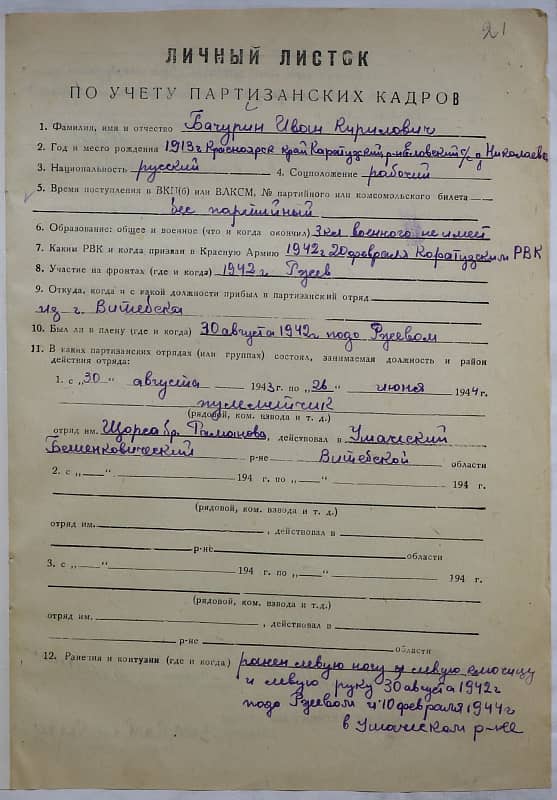 21
ЛИЧНЫЙ ЛИСТОК
ПО УЧЕТУ ПАРТИЗАНСКИХ КАДРОВ
1. Фамилия, имя и отчество Бачурин Иван Кирилович
2. Год и место рождения 1913 г Красноярск край Каратузский р-н с/с д Николаевка
3. Национальность русский 4. Соцположение рабочий
5. Время поступления в ВКП(б) или ВЛКСМ, № партийного или комсомольского билета
бес партийный
6. Образование: общее и военное (что и когда окончил) 3 кл военного не имеет
7. Каким РВК и когда призван в Красную Армию 1942 г 20 февраля Каратузским РВК
8. Участие на фронтах (где и когда) 1942 г. Ржев
9. Откуда, когда и с какой должности прибыл в партизанский отряд
из г. Витебска
10. Был ли в плену (где и когда) 30 августа 1942 г подо Ржевом
11. В каких партизанских отрядах (или группах) состоял, занимаемая должность и район
действия отряда:
1. с „30“ августа 1943 г. по „26“ июня 1944 г.
пулеметчик
(рядовой, ком. взвода и т. д.)
отряд им. Щорса бр. Романова, действовал в Ушачский
Бешенковический р-не Витебской области
2. с „ “ 194 г. по „ “ 194 г.
(рядовой, ком. взвода и т. д.)
отряд им. , действовал в
р-не области
3. с „ “ 194 г. по „ “ 194 г.
(рядовой, ком. взвода и т.д.)
отряд им. , действовал в
р-не области
12. Ранения и контузии (где и когда) ранен левую ногу левую
и левую руку 30 августа 1942 г
подо Ржевом и 10 февраля 1944 г
в Ушачском р-не